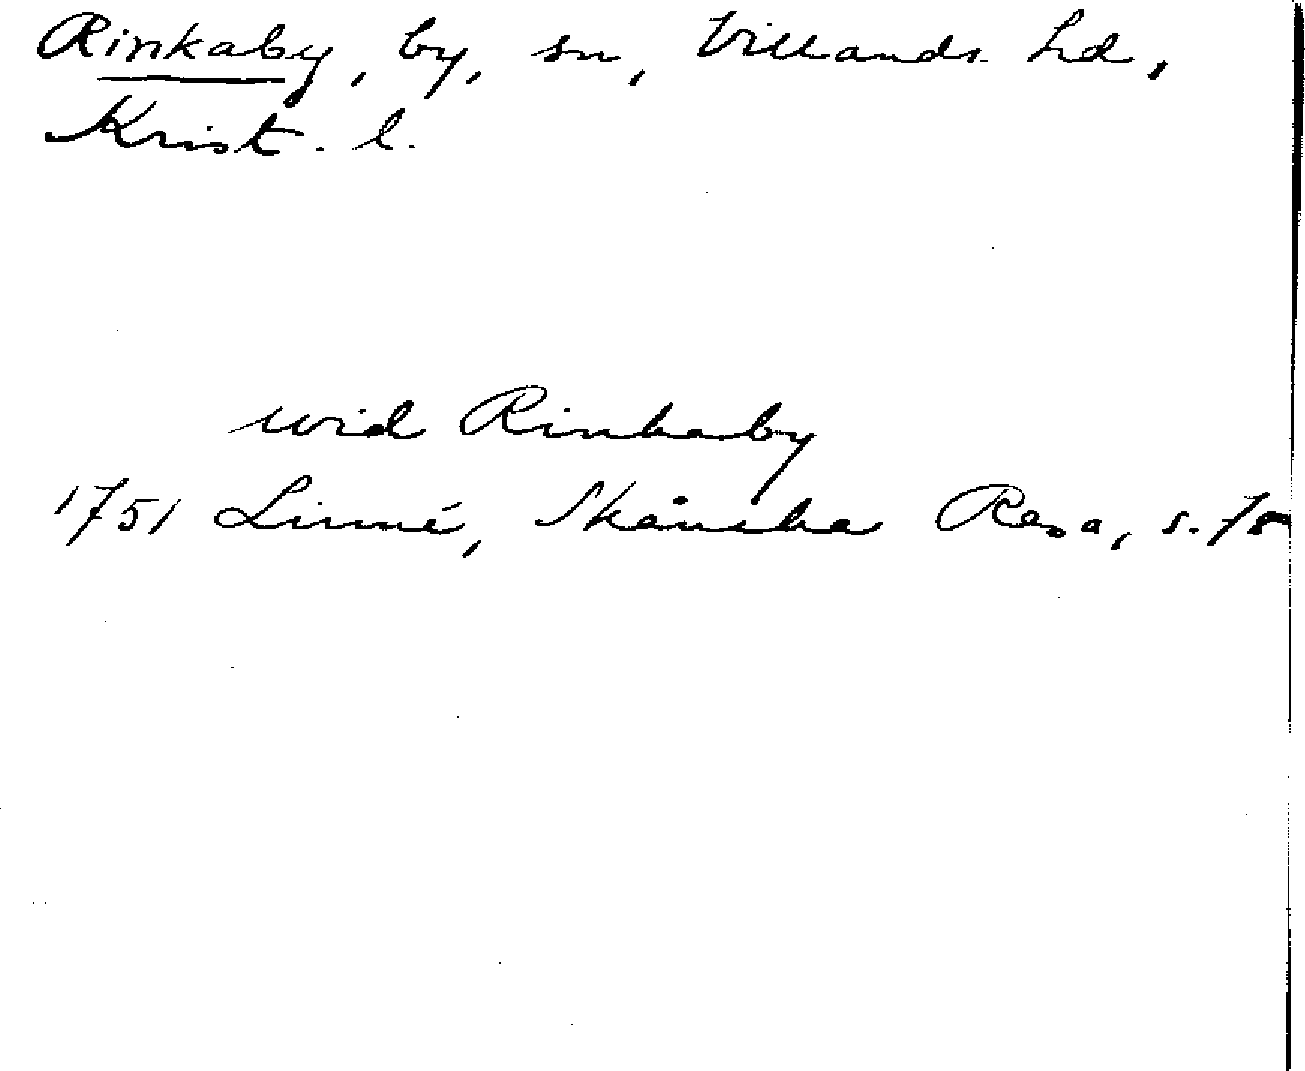 Rinkaby, by, sn, Villands hd,
Krist. l.
wid Rinkaby
1751 Linné, Skånska Resa, s.